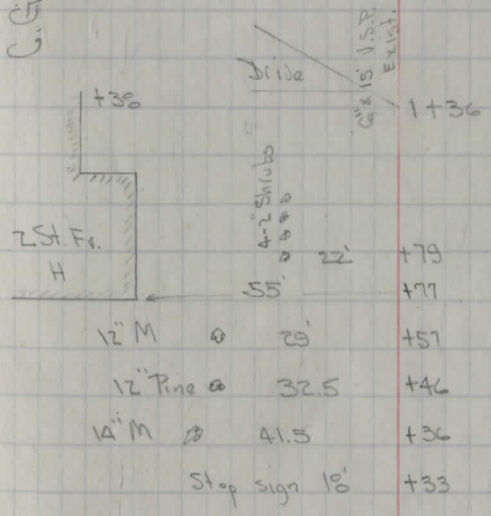 6" x 15' V.S.P. Exist.
Drive
1+36
+38
4-2" Shrubs
2 St. Fr.
H
22' +79
55' +77
12" M 29' +57
12" Pine 32.5 +46
14" M 41.5 +36
Stop sign 18' +33